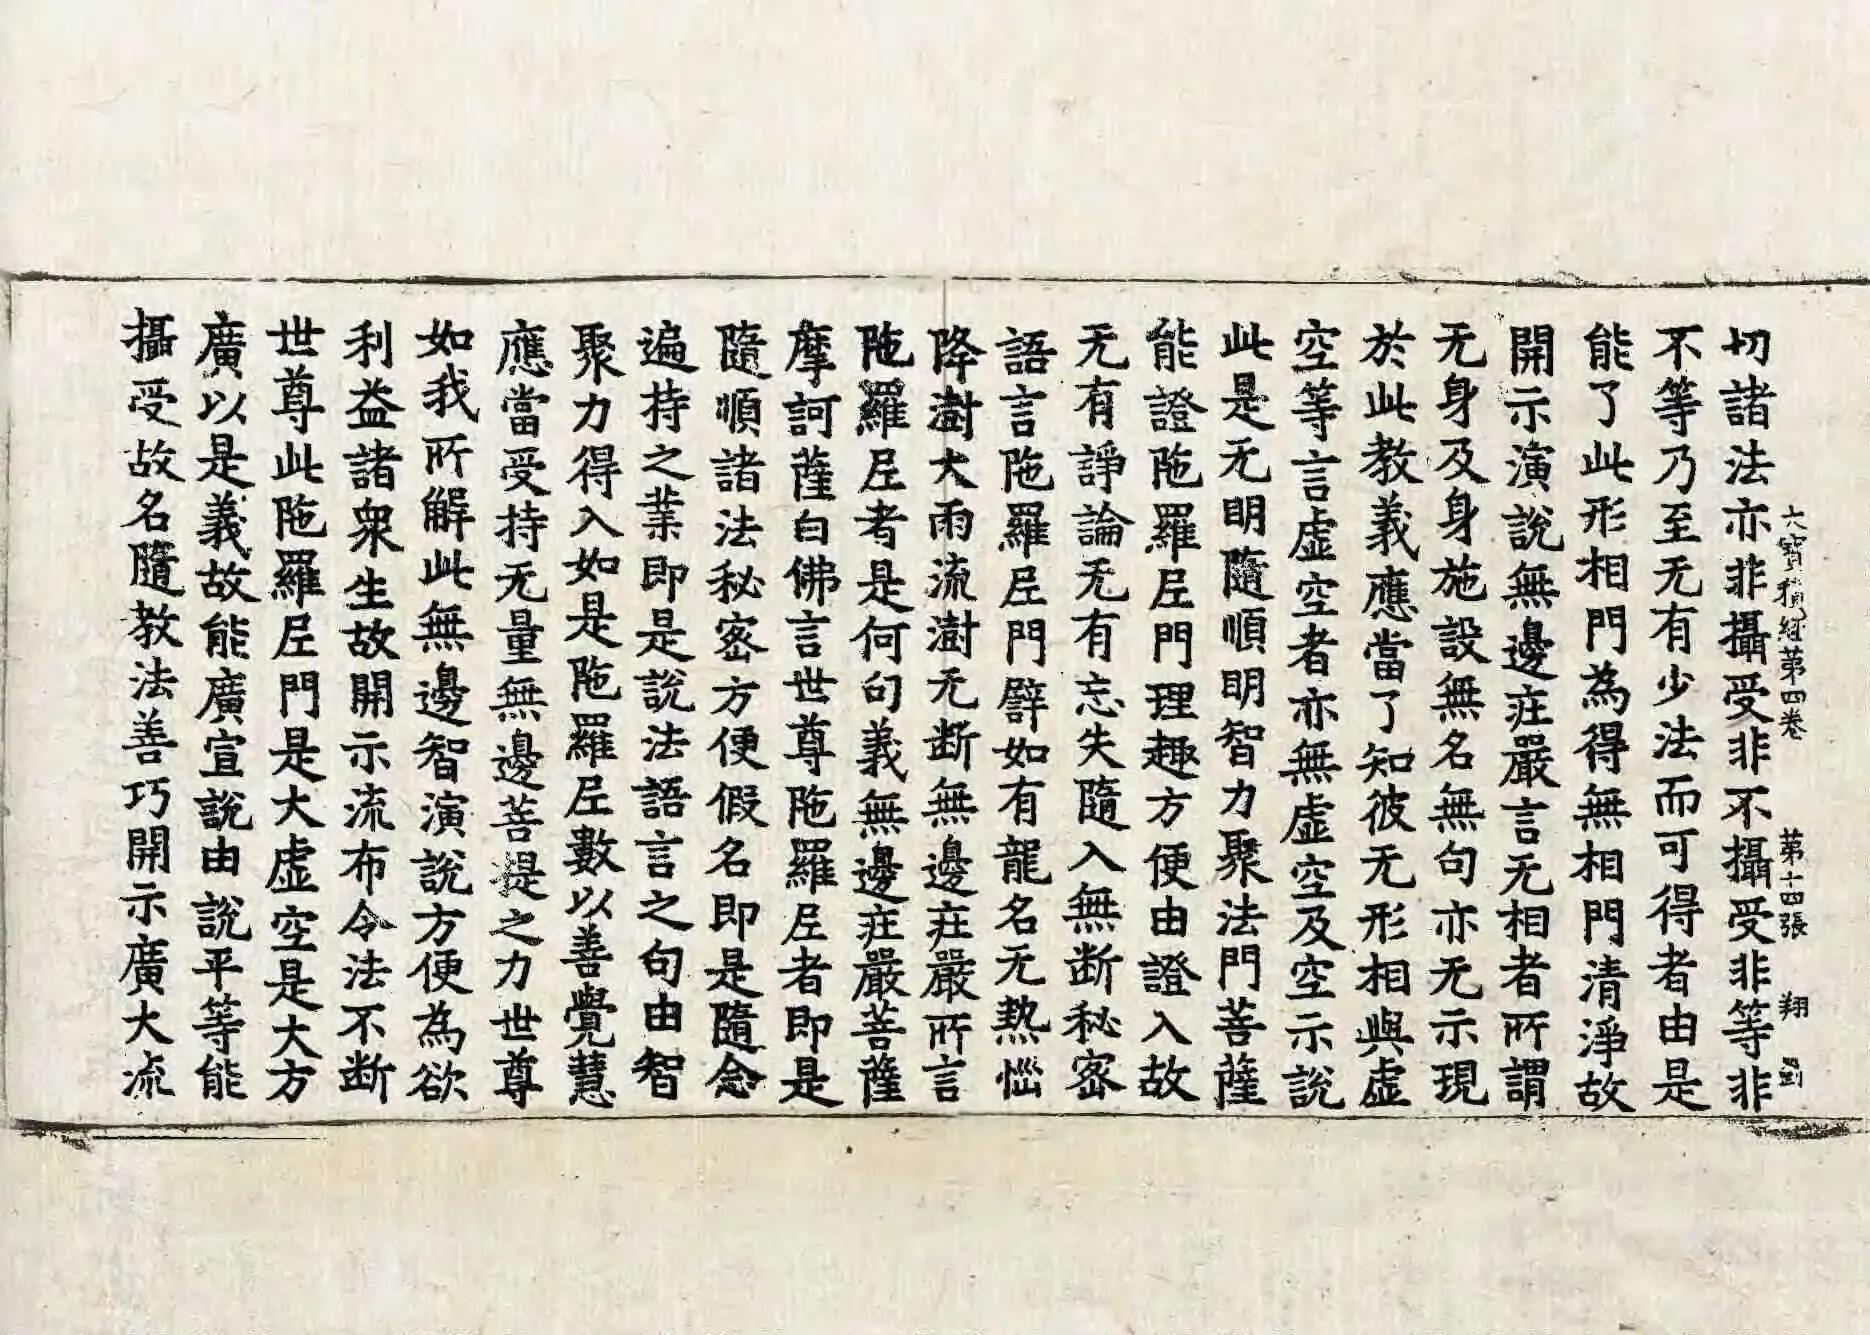 大寶積經第四卷 第十四張 翔
切諸法亦非攝受非不攝受非等非
不等乃至无有少法而可得者由是
能了此形相門為得無相門清淨故
開示演說無邊疘嚴言无相者所謂
无身及身施設無名無句亦无示現
於此教義應當了知彼无形相與虛
空等言虛空者亦無虛空及空示說
此是无明隨順明智力聚法門菩薩
能證陁羅𡰱門理趣方便由證入故
无有諍論无有忘失隨入無断秘密
語言陁羅𡰱門譬如有龍名无熱惱
降澍大雨流澍无断無邊疘嚴所言
陁羅𡰱者是何句義無邊疘嚴菩薩
摩訶薩白佛言世尊陁羅𡰱者即是
隨順諸法秘密方便假名即是隨念
遍持之業即是說法語言之句由智
聚力得入如是陁羅𡰱數以善覺慧
應當受持无量無邊菩提之力世尊
如我所解此無邊智演說方便為欲
利益諸衆生故開示流布令法不断
世尊此陁羅𡰱門是大虛空是大方
廣以是義故能廣宣說由說平等能
攝受故名隨教法善巧開示廣大流